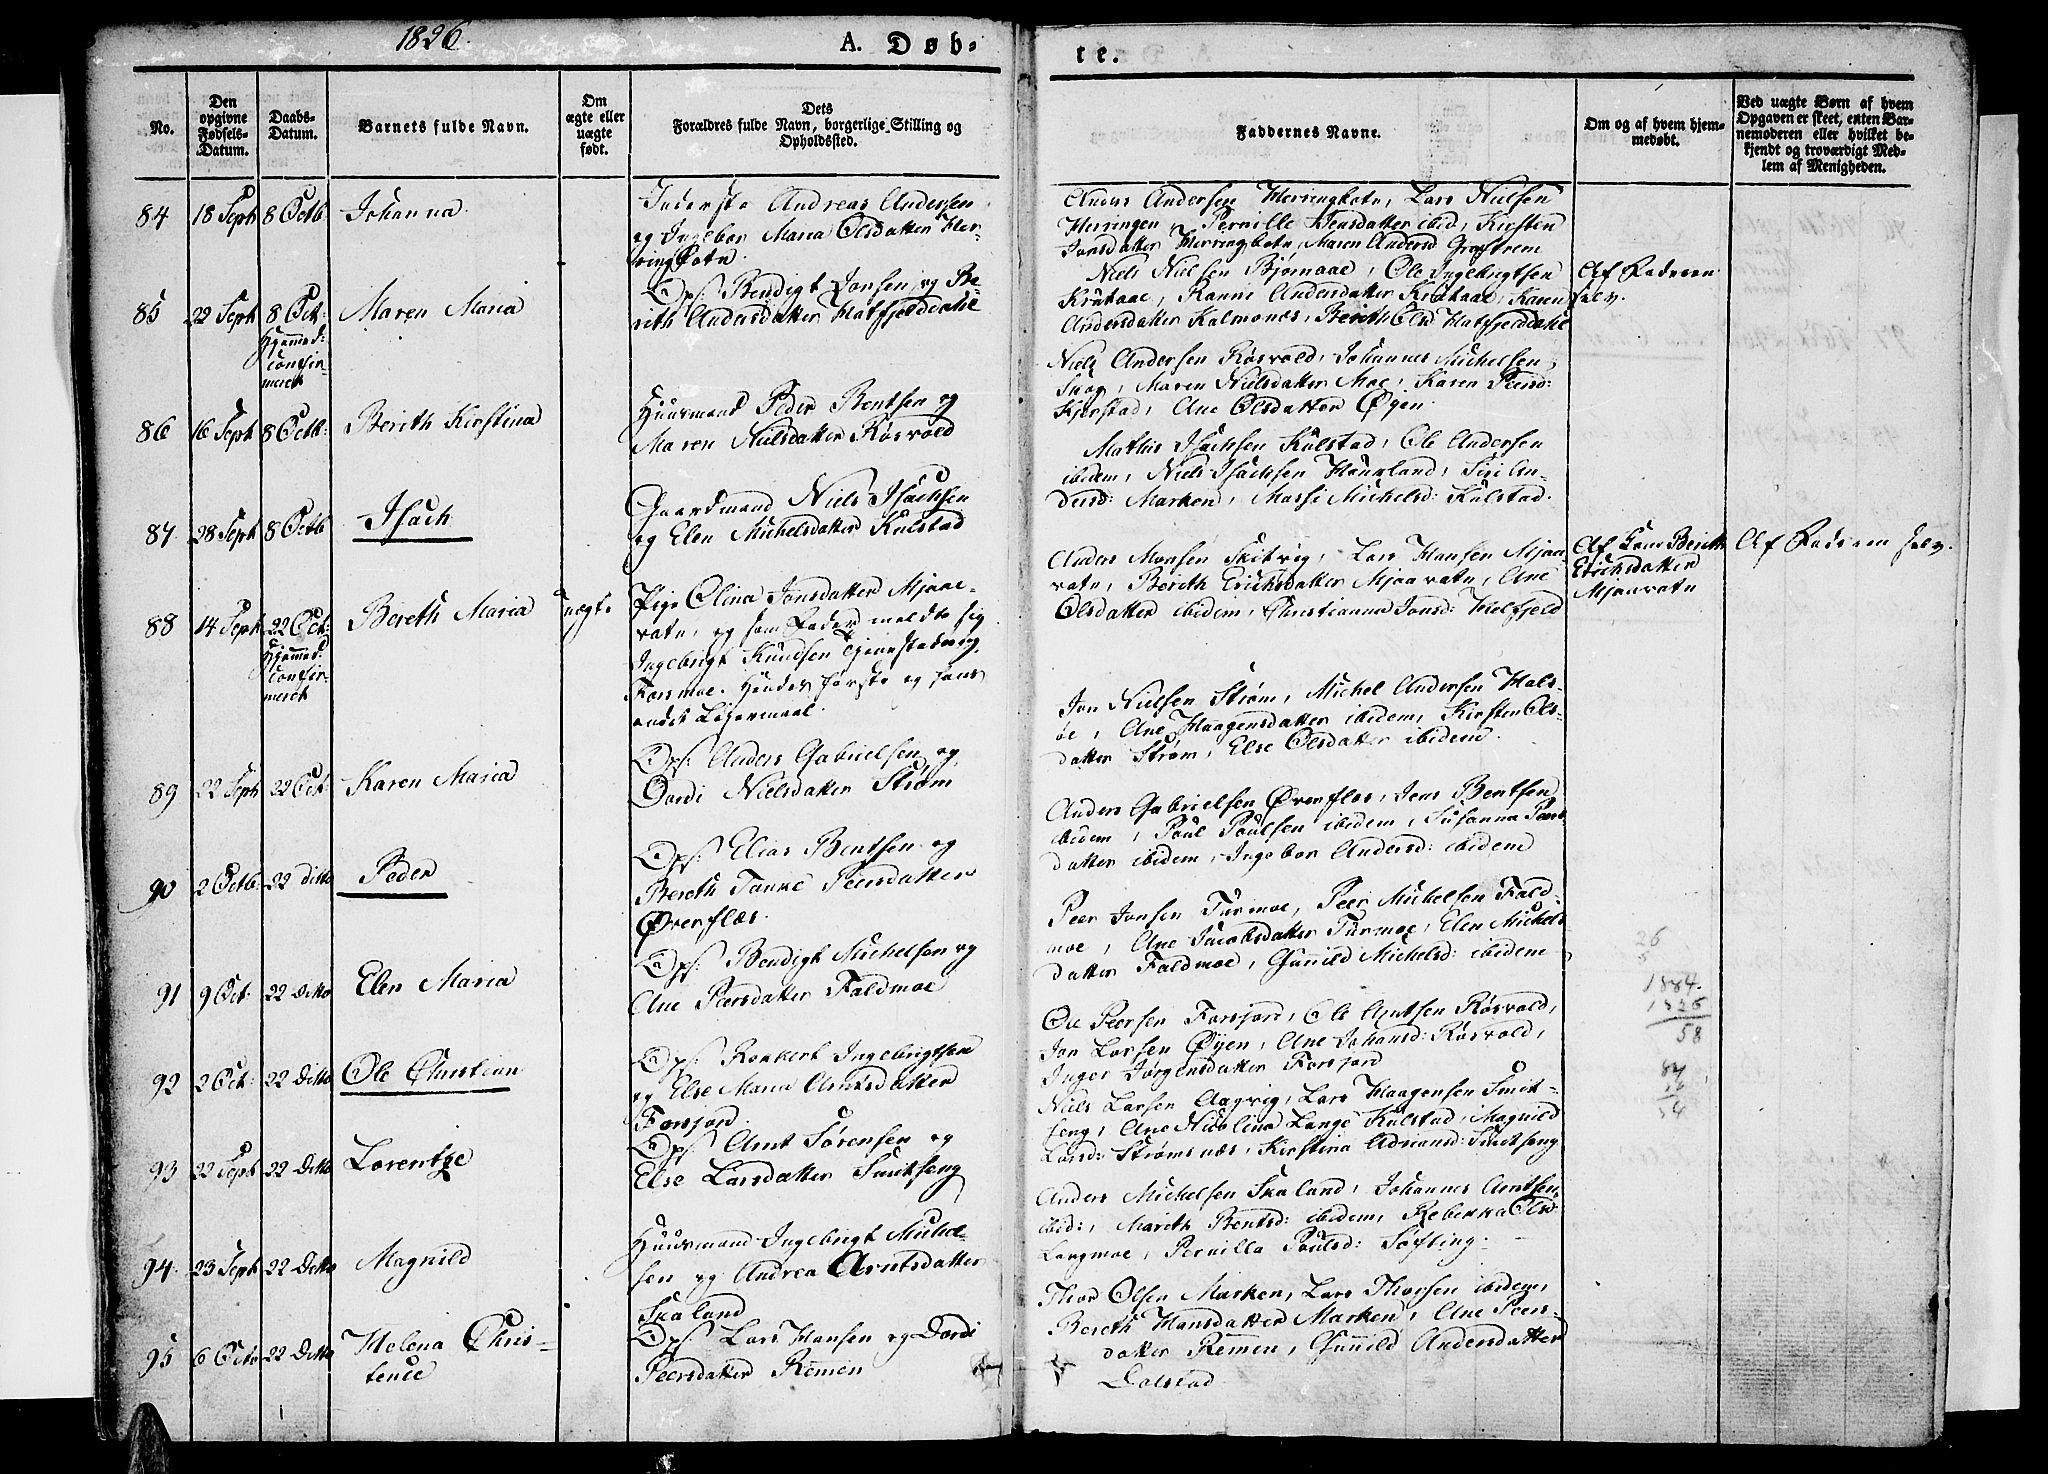 1826.
A. Døb-
te.
No.
Den opgivne Fødsels-Datum.
Daabs-Datum.
Barnets fulde Navn.
Om ægte eller uægte født.
Dets Forældres fulde Navn, borgerlige Stilling og Opholdssted.
Faddernes Navne.
Om og af hvem hjem-
medøbt.
Ved uægte Børn af hvem
Opgaven er skeet, enten Bar-
nemoderen eller hvilket be-
kjendt og troværdigt Med-
lem af Menigheden.
84 18 Sept 8 Octb Johanna
Inderste Andreas Andersen
og Ingebor Maria Olsdatter Her-
ringbotn.
Anders Andersen Herringbotn, Lars Nielsen
Herringen, Pernille Jensdatter ibid, Kirsten
Jonsdatter Herringbotn, Maren Andersd
85 22 Sept 8 Oct: Hjemmed: confir-
meret
Maren Maria
Ops: Bendigt Jonsen og Be-
rith Andersdatter Hatfjelddahl
Niels Nielsen Bjørnaae, Ole Ingebrigtsen
Krutaae, Ranni Andersdatter Krutaae, Karen
Andersdatter Kalmones, Berith Olsd Hatfjelddahl
Af Faderen
selv.
86 16 Sept 8 Octb: Berith Kirstina
Huusmand Peder Bentsen og
Maren Nielsdatter Røsvold
Niels Andersen Røsvold, Johannes Michelsen
Skog, Maren Nielsdatter Moe, Karen Peersd:
Kjerstad, Ane Olsdatter Øyen.
87 28 Sept 8 Octb Isach
Gaardmand Niels Isachsen
og Elen Michelsdatter Kulstad
Mathis Isachsen Kulstad, Ole Andersen
ibidem, Niels Isachsen Houkland, Siri An-
dersd: Marken, Massi Michelsd: Kulstad.
88 14 Sept 22 Oct: Hjemmed: confir-
meret
Bereth Maria uægte
Pige Olina Jonsdatter Mjaae-
vatn, og som Fader meldte sig
Ingebrigt Knudsen
Forsmoe. Hendes første og hans
andet Leiermaal.
Anders Monsen Skitvig, Lars Hansen Mjaa-
vatn, Bereth Erichsdatter Mjaavatn, Ane
Olsdatter ibidem, Christianna Jonsd: Helfjeld
Af Kone Berith
Erichsdatter
Mjaavatn
Af Faderen selv.
89 22 Sept 22 Oct: Karen Maria
Ops: Anders Gabrielsen og
Dordi Nielsdatter Strøm
Jon Nielsen Strøm, Michel Andersen Hals-
øe, Ane Haagensdatter ibidem, Kirsten Ols-
datter Strøm, Else Olsdatter ibidem.
90 2 Octb: 22 ditto Peder
Ops: Elias Bentsen og
Bereth Tanke Peersdatter
Øverflæs.
Anders Gabrielsen Øverflæs, Jens Bentsen
ibidem, Poul Poulsen ibidem, Susanna Peers-
datter ibidem, Ingebor Andersd: ibidem
91 9 Oct: 22 Ditto Elen Maria
Ops: Bendigt Michelsen og
Ane Peersdatter Faldmoe
Peer Jonsen Turmoe, Peer Michelsen Fald-
moe, Ane Jacobsdatter Turmoe, Elen Michels-
datter Faldmoe, Gunnild Michelsd: ibidem
92 2 Oct: 22 Ditto Ole Christian
Ops: Ronkert Ingebrigtsen
og Else Maria Arntsdatter
Forsjord.
Ole Peersen Forsjord, Ole Arntsen Røsvold,
Jon Larsen Øyen, Ane Johansd: Røsvold,
Inger Jørgensdatter Forsjord
93 22 Sept 22 Ditto Lorentze
Ops: Arnt Sørensen og
Else Larsdatter Smitseng
Niels Larsen Aagvig, Lars Haagensen Smit-
seng, Ane Nicolina Lange Kulstad, Magnild
Larsd: Strømsnæs, Kirstina Adriansd: Smitseng
94. 23 Sept 22 Ditto Magnild
Huusmand Ingebrigt Michel-
sen og Andrea Arntsdatter
Skaland
Anders Michelsen Skaland, Johannes Arntsen
ibid:, Mareth Bentsd: ibidem, Rebekka Olsd
Langmoe, Pernilla Poulsd: Søfting.
95 6 Octo 22 Ditto Helena Chris-
tence
Ops: Lars Hansen og Dordi
Peersdatter Remen
Thor Olsen Marken, Lars Thorsen ibidem,
Bereth Hansdatter Marken, Ane Peers-
datter Remen, Gunnild Andersdatter
Dolstad
26
5
1884.
1826
58
84
26
54